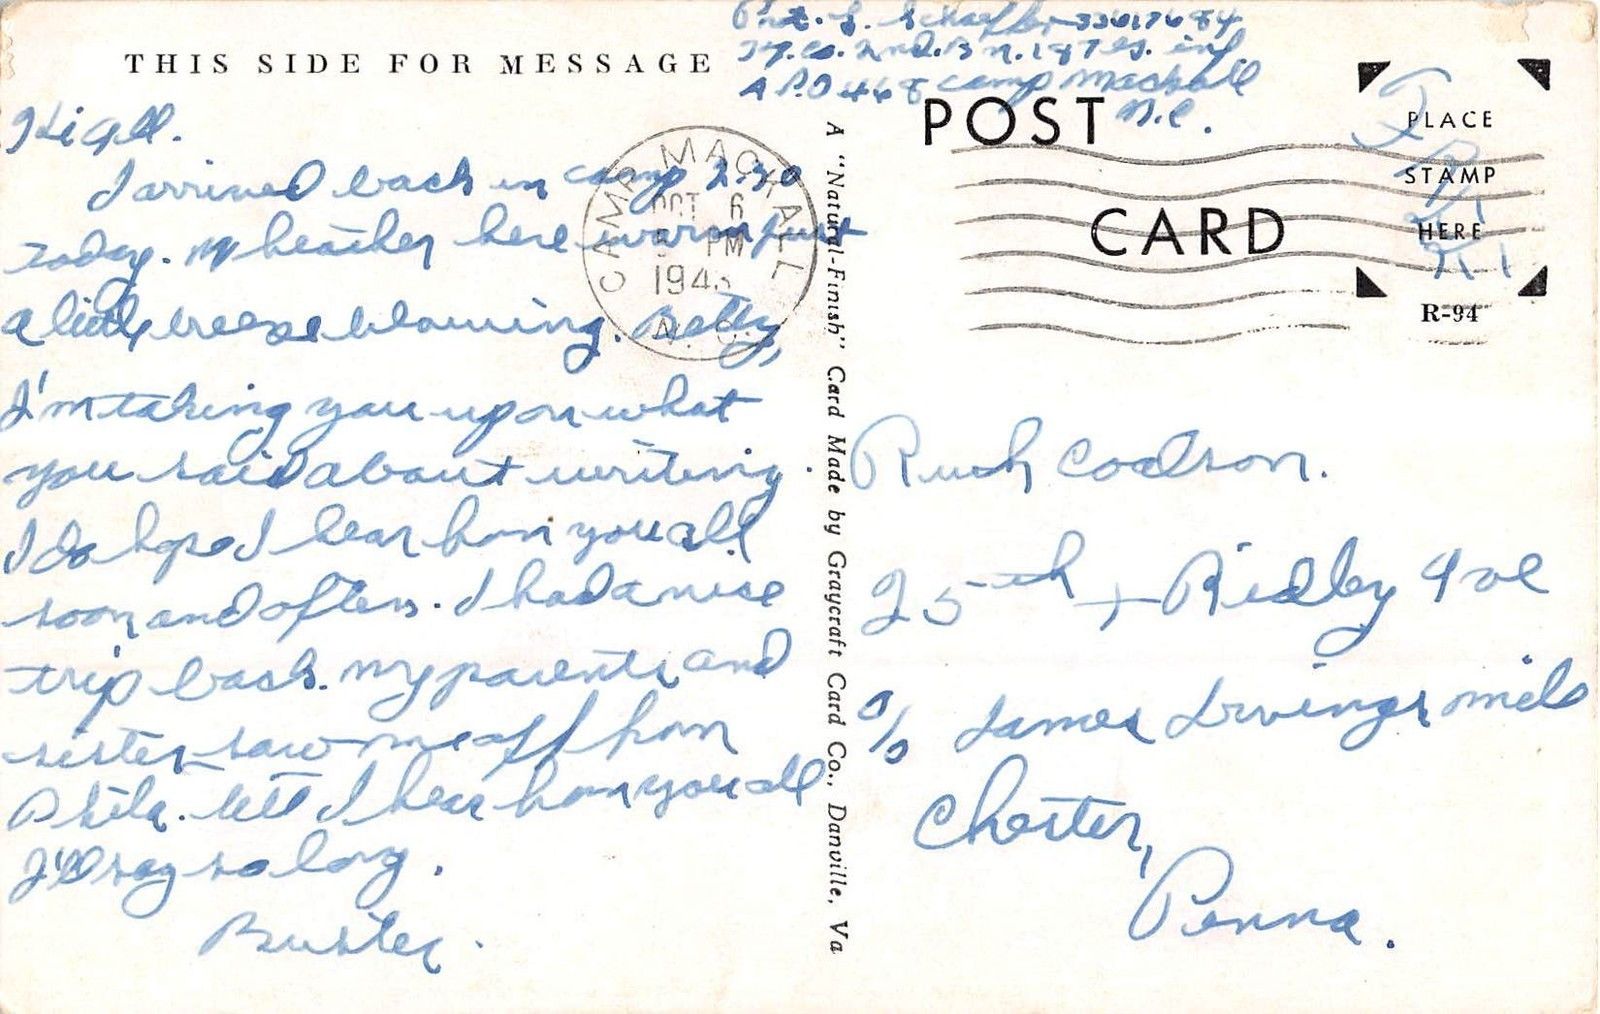 Pvt. L. Schaeffer 33617684
Hq. Co. 2nd. Bn. 187 Gl. inf
A.P.O 468 Camp Mackall
N.C.
THIS SIDE FOR MESSAGE
Hi all.
I arrived back in camp 2:30
today. Wheather here warm just
a little breeze blowing. Betty,
I'm taking you up on what
you said about writing.
I do hope I hear from you all
soon and often. I had a nise
trip back. My parents and
sister saw me off from
Phila. till I hear from you all
I'll say so long.
Buster.
CAMP MACKALL
OCT 6
PM
1943
N.C.
A "Natural-Finish" Card Made by Graycraft Card Co., Danville, Va
POST
CARD
PLACE
STAMP
HERE
R-94
Ruth Coalson.
25th + Ridley Ave
c/o James Irvings mill
Chester,
Penna.